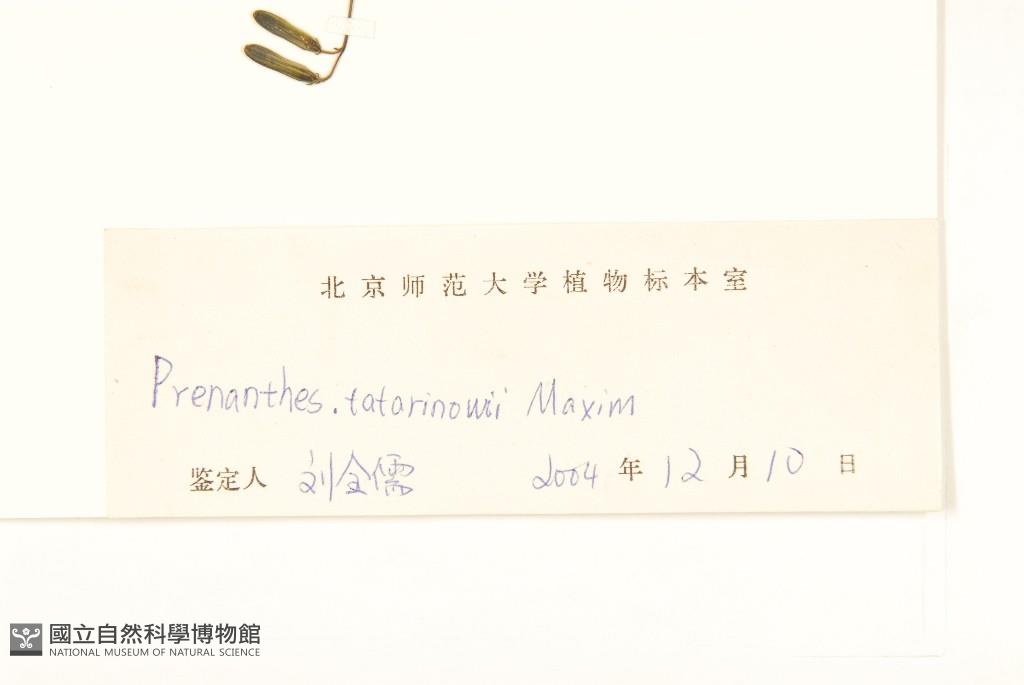 北京师范大学植物标本室
Prenanthes.tatarinowii Maxim
鉴定人 刘全儒 2004 年 12 月 10 日
國立自然科學博物館
NATIONAL MUSEUM OF NATURAL SCIENCE